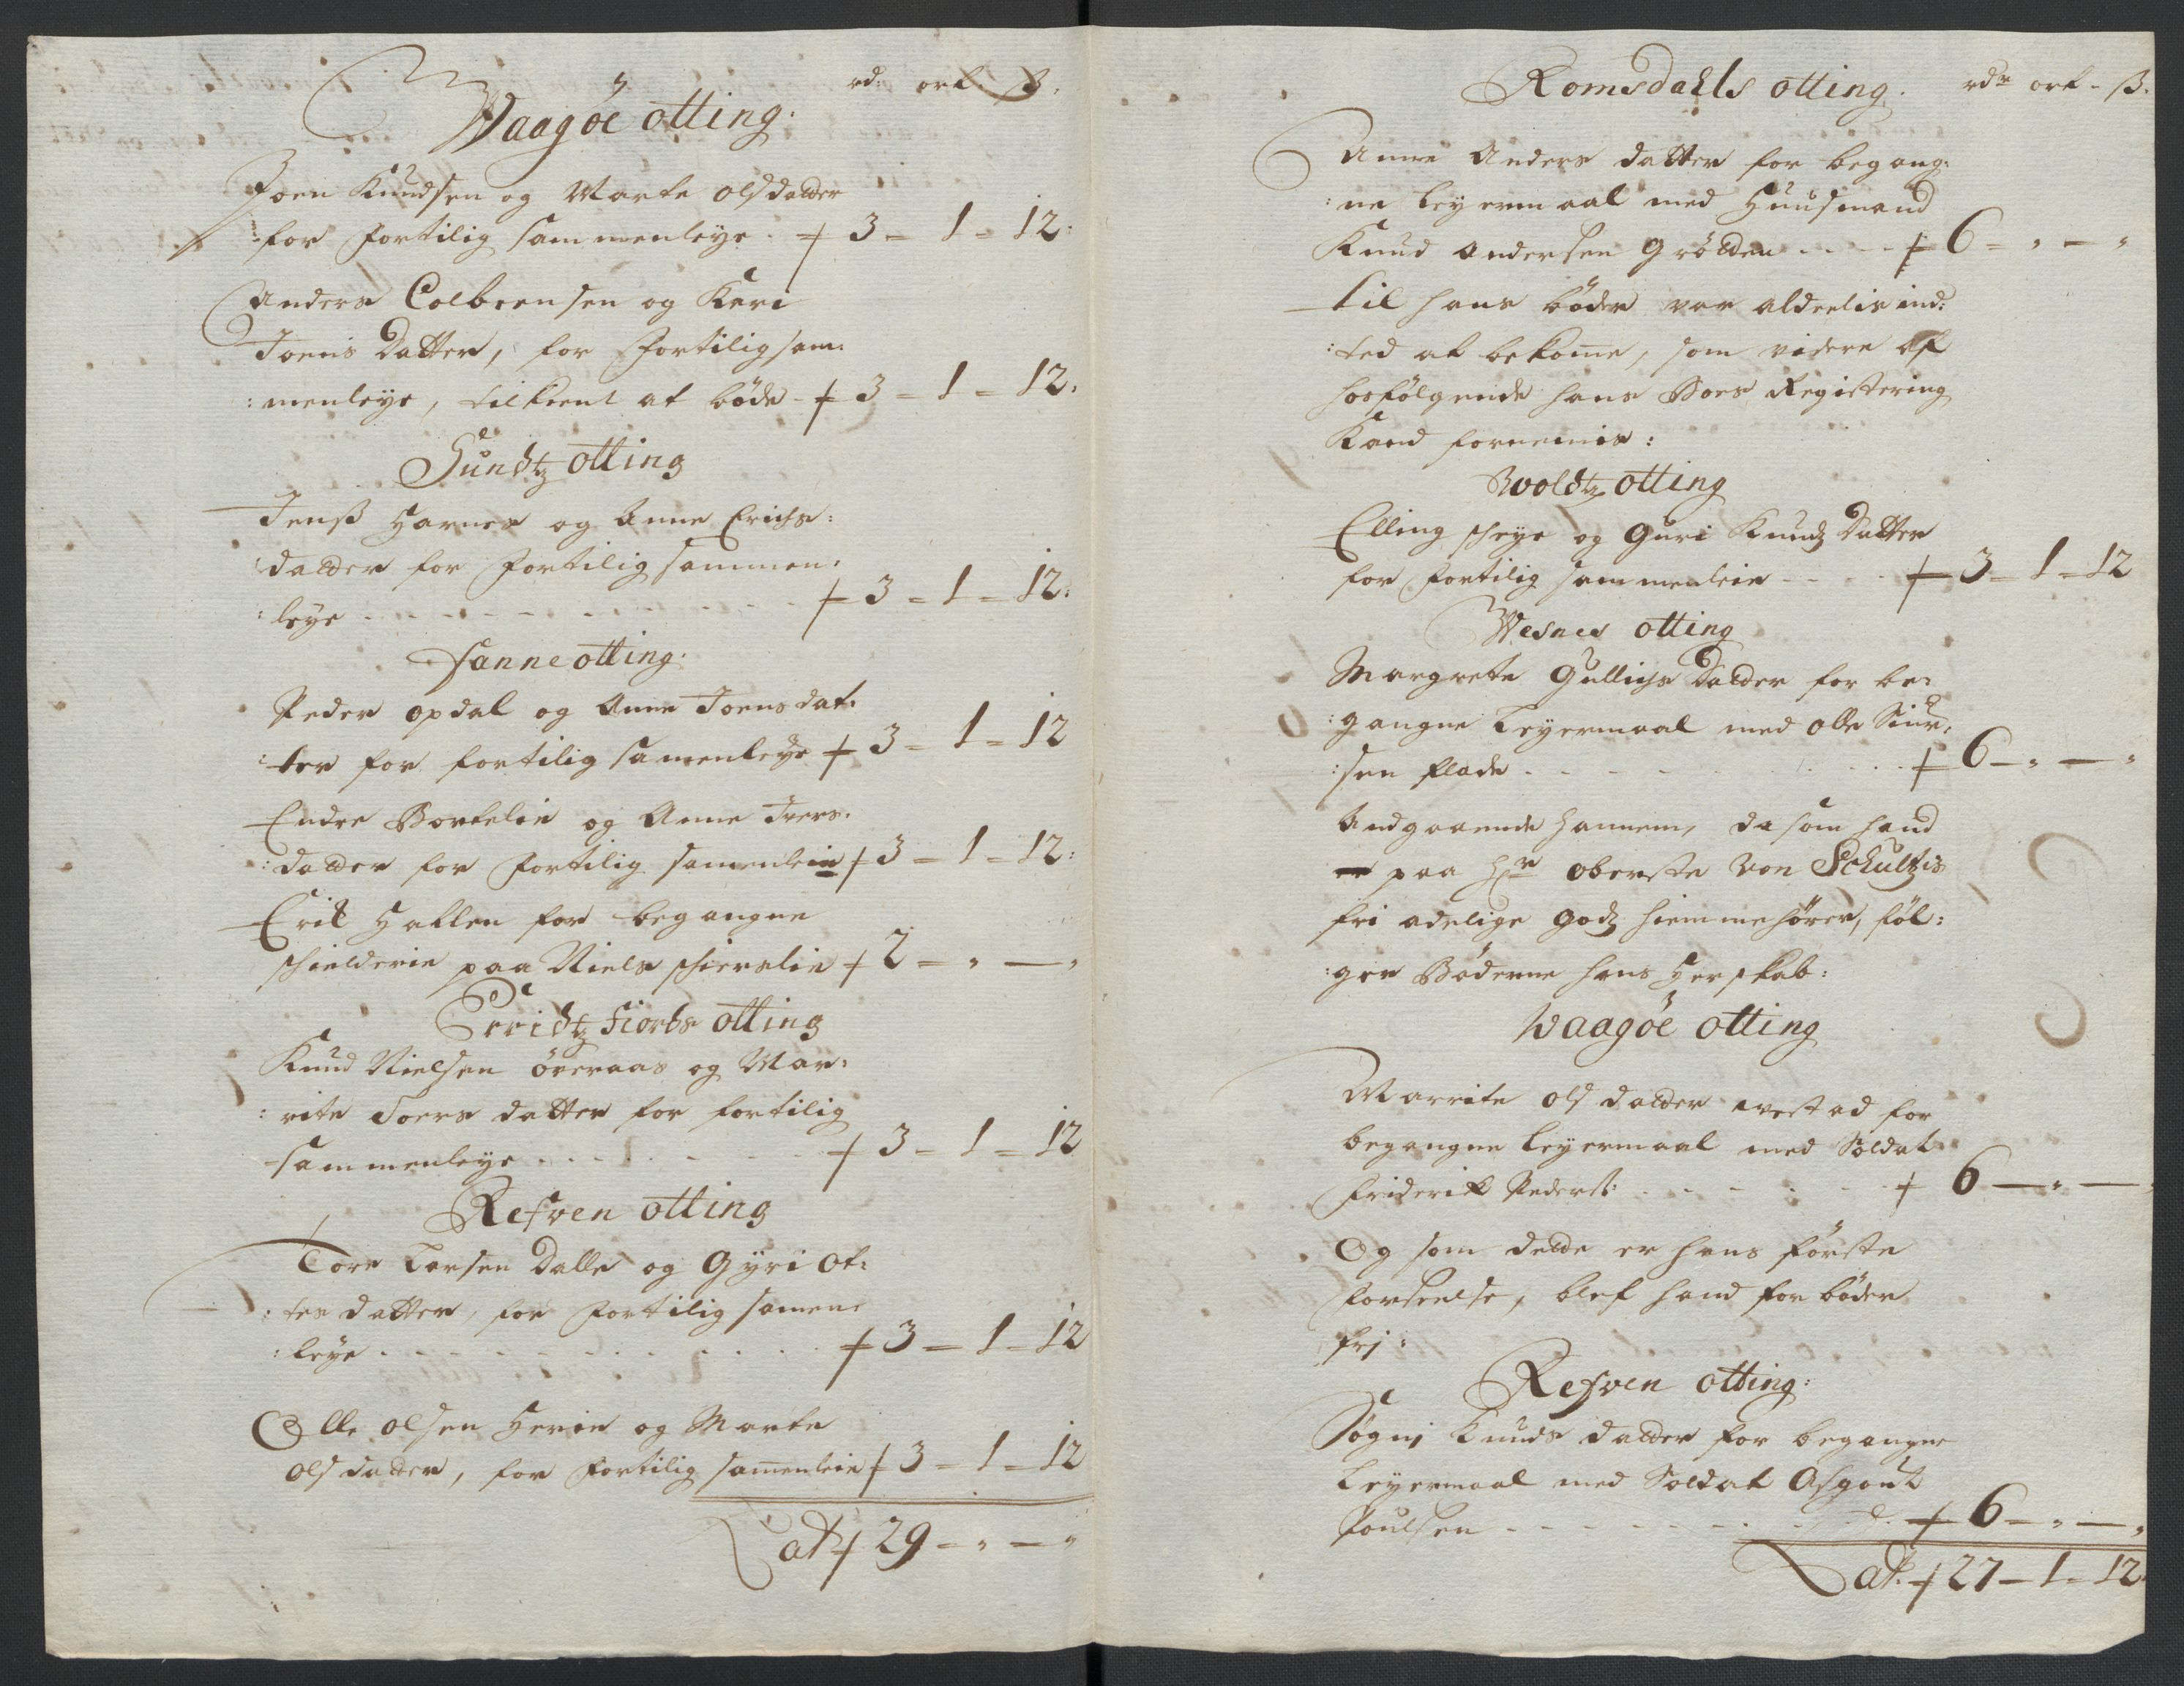 rd: ort. ß.
Waagöe otting:
Joen Knudsen og Marte olsdatter
for fortilig sammenleye . 3 - 1 - 12:
Anders Colbrensen og Kari
Joens Datter, for fortilig sam:
:menleye, tilkient at böde - 3 - 1 - 12.
Sundtz otting
Jenß Harnes og Anne Erichs:
:datter for fortilig sammen:
:leye - - - - - - 3 - 1 - 12:
fanne otting:
Peder opdal og Anne Joens dat:
:ter for fortilig samenleye 3 - 1 - 12
Endre Bortelie og Anne Ivers:
:datter for fortilig samenleie 3 - 1 - 12:
Erik Hallen for begangne
schielderie paa Niels schierslie 2 - " — "
Erridtz fiords otting
Knud Nielsen överaas og Mar:
:rite Toers datter for fortilig
sammenleye . . . . . . 3 - 1 - 12
Resven otting
Tore Larsen Dalle og Gyri Ot:
:tes datter, for fortilig samen:
:leye . . . . . . . . 3 - 1 - 12
Olle olsen Herie og Marte
ols datter, for fortilig samenleie 3 - 1 - 12
Lat 29 - " — "
Romsdahls otting. rdr ort - ß.
Anne Anders datter for begang:
:ne leyermaal med Huusmand
Knud Andersen Grötten . . . . 6 - " — "
til hans böder var alderlis ind:
:ted at bekome, som videre af
hosfölgende hans Boes Registering
Kand fornemis:
Woldtz otting
Elling scheye og Guri Knudz Datter
for fortilig sammenleie - - - 3 - 1 - 12
Wesnes otting
Margrete Gullichs Datter for be:
:gangne Leyermaal med olle Siur:
:sen flade . . . . . . . 6 — " — "
Andgaaende hannem, da som hand
paa Hr oberste von Schultzis
fri adelige godz hiemmehörer, föl:
:ger Böderne hans Herskab:
Waagöe otting
Marrite ols datter westad for
begangne leyermaal med Soldat
friderik Peders: . . . . . 6 — " —
Og som dette er hans förste
forseelse, blef hand for böder
frj:
Resven otting:
Sögni Knuds datter for begangne
Leyermaal med Soldat Asgout
Poulsen - - - - - - 6 - " — "
Lat. 27 - 1 - 12.